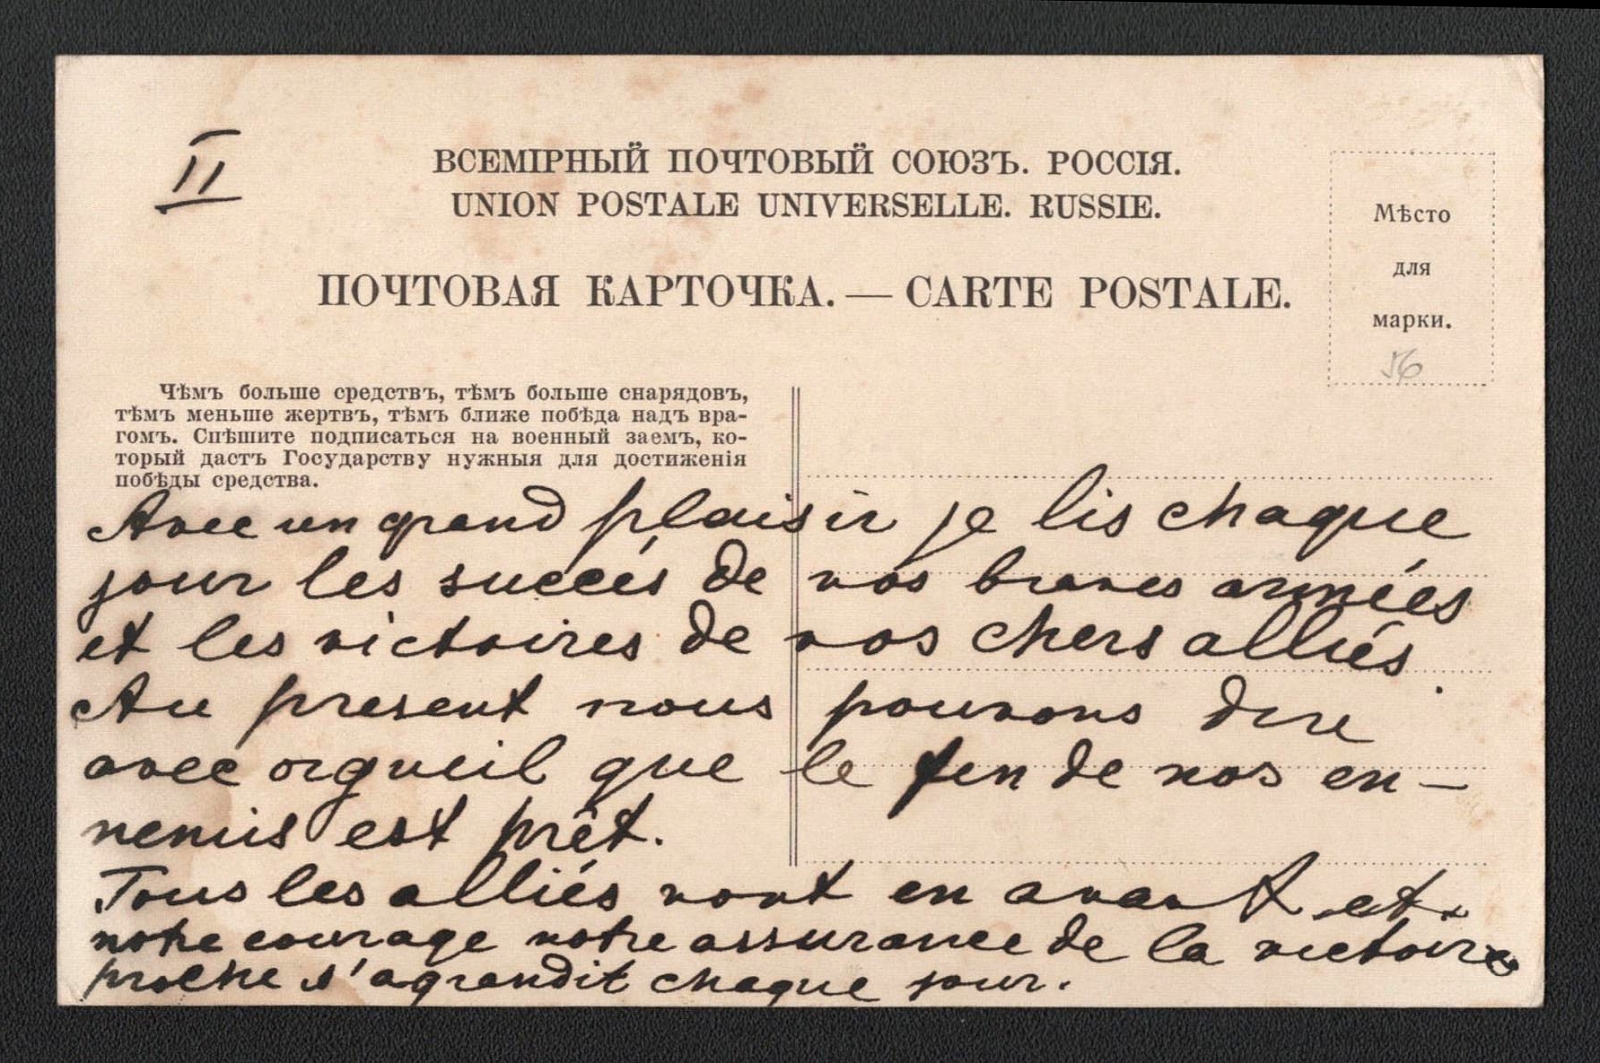 II
ВСЕМІРНЫЙ ПОЧТОВЫЙ СОЮЗЪ. РОССІЯ.
UNION POSTALE UNIVERSELLE. RUSSIE.
ПОЧТОВАЯ КАРТОЧКА. — CARTE POSTALE.
Мѣсто
для
марки.
56
Чѣмъ больше средствъ, тѣмъ больше снарядовъ,
тѣмъ меньше жертвъ, тѣмъ ближе побѣда надъ вра-
гомъ. Спѣшите подписаться на военный заемъ, ко-
торый дастъ Государству нужныя для достиженія
побѣды средства.
Avec un grand plaisir je lis chaque
jour les succés de nos braves armées
et les victoires de nos chers alliés.
Au present nous pouvons dire
avec orgueil que le fin de nos en-
nemis est prêt.
Tous les alliés vont en avant et
notre courage notre assurance de la victoire
proche s'agrandit chaque jour.